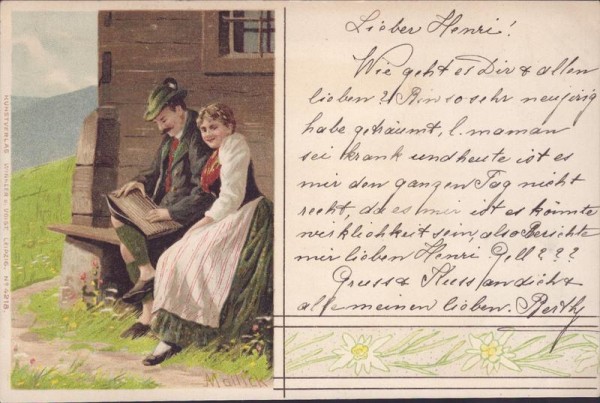 Lieber Henri!
Wie geht es Dir & allen
lieben? Bin so sehr neugirig
habe geträumt, l. maman
sei krank und heute ist es
mir den ganzen Tag nicht
recht, da es mir ist es könnte
wirklichkeit sein, also Berichte
mir lieben Henri. Gell???
Gruss & Kuss an dich &
alle meinen lieben. Berthy
KUNSTVERLAG VOGELER u. VOIGT LEIPZIG. No 4218
Mailick